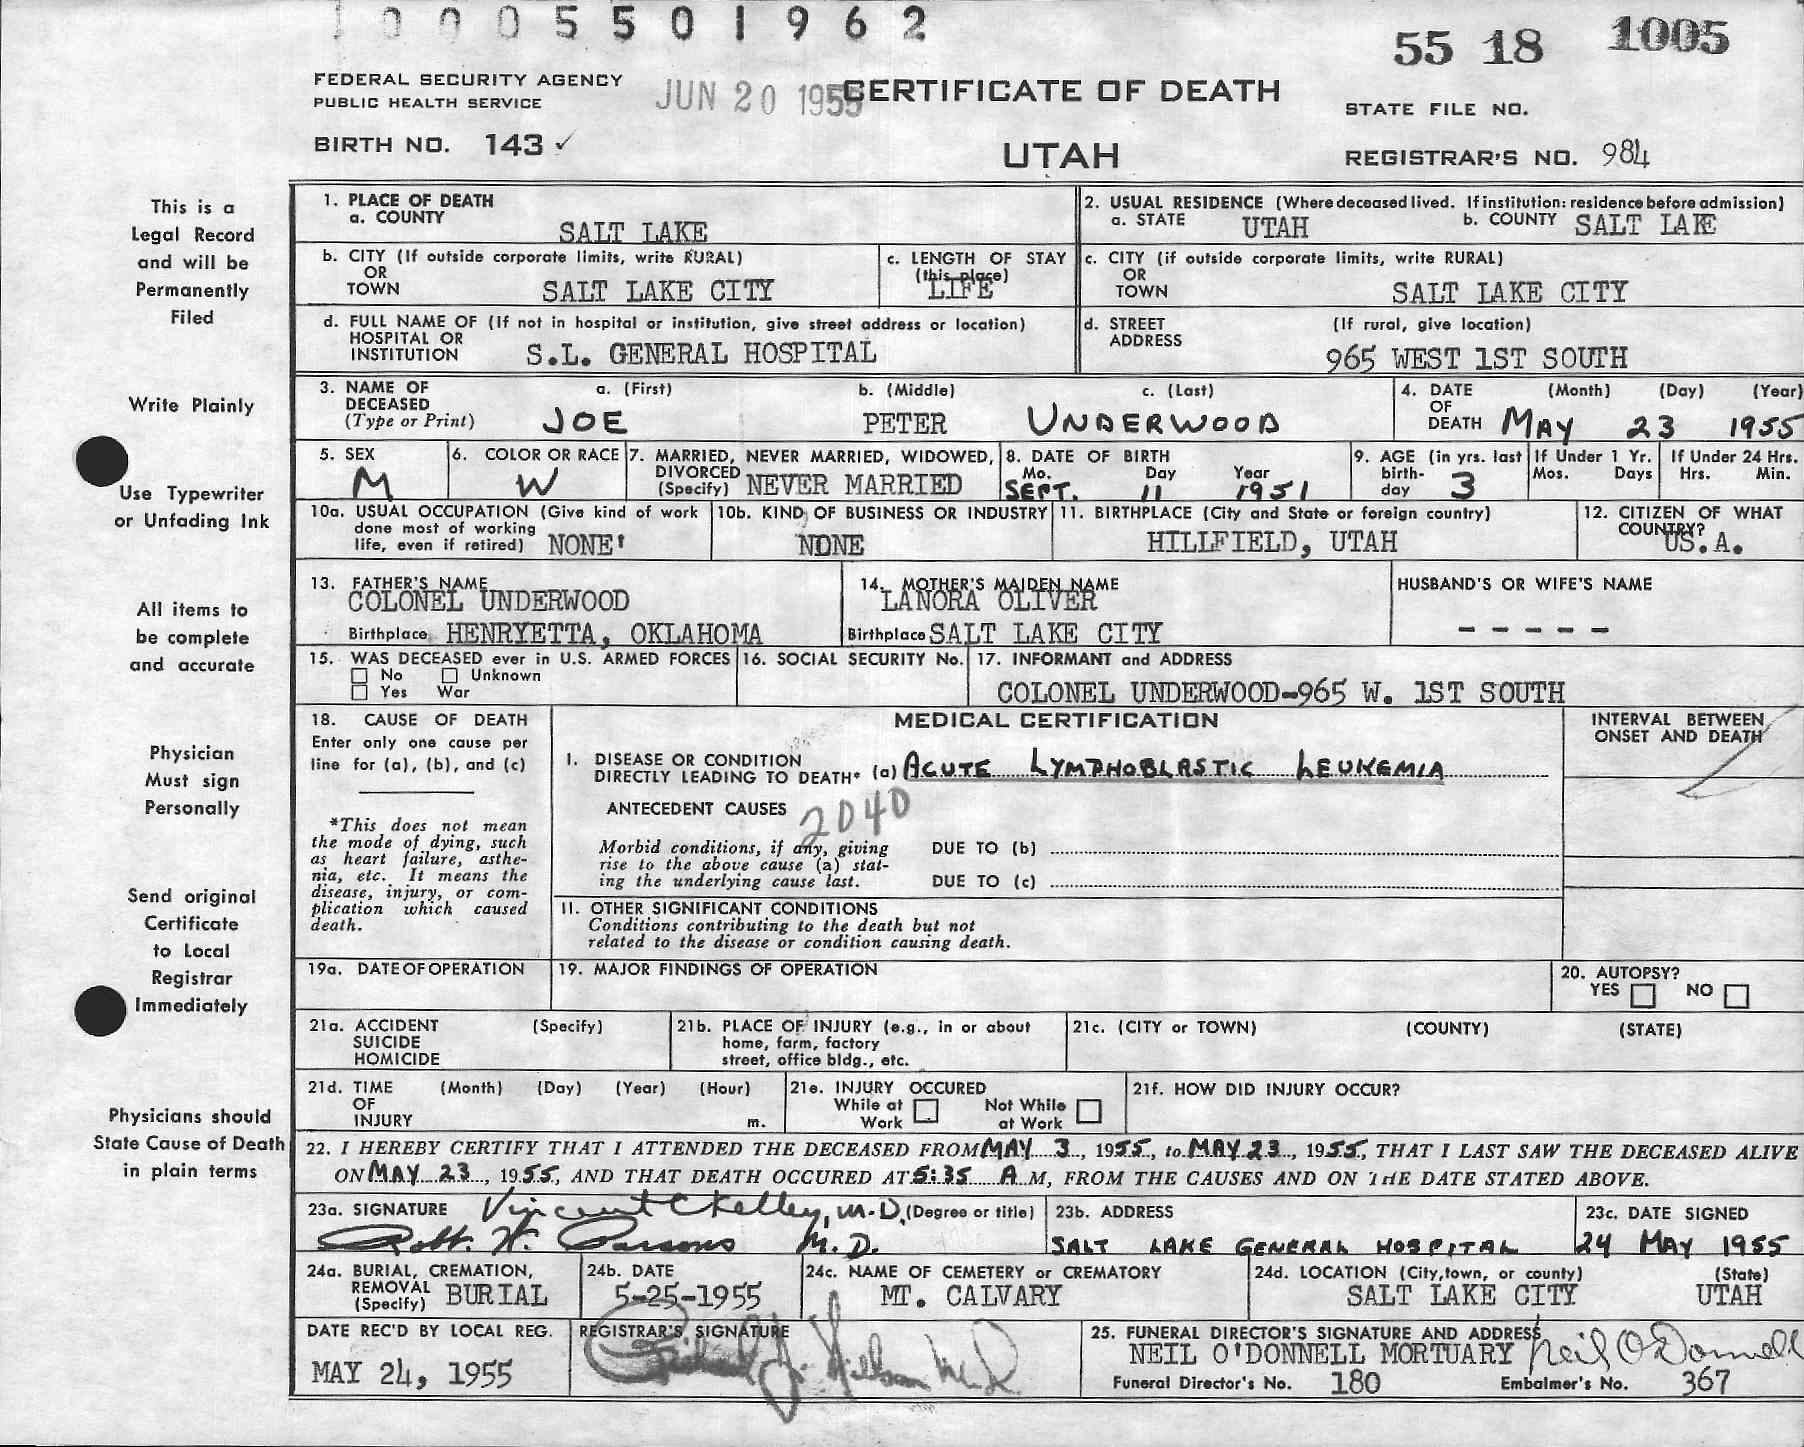 1000 5 5 0 1 9 6 2
55 18 1005
FEDERAL SECURITY AGENCY
PUBLIC HEALTH SERVICE
JUN 20 1955
CERTIFICATE OF DEATH
STATE FILE NO.
BIRTH NO. 143 ✓
UTAH
REGISTRAR'S NO. 984
This is a
Legal Record
and will be
Permanently
Filed
Write Plainly
Use Typewriter
or Unfading Ink
All items to
be complete
and accurate
Physician
Must sign
Personally
Send original
Certificate
to Local
Registrar
Immediately
Physicians should
State Cause of Death
in plain terms
1. PLACE OF DEATH
a. COUNTY
SALT LAKE
2. USUAL RESIDENCE (Where deceased lived. If institution: residence before admission)
a. STATE UTAH b. COUNTY SALT LAKE
b. CITY (If outside corporate limits, write RURAL)
OR
TOWN SALT LAKE CITY
c. LENGTH OF STAY
(this place)
LIFE
c. CITY (if outside corporate limits, write RURAL)
OR
TOWN SALT LAKE CITY
d. FULL NAME OF (If not in hospital or institution, give street address or location)
HOSPITAL OR
INSTITUTION S.L. GENERAL HOSPITAL
d. STREET (If rural, give location)
ADDRESS
965 WEST 1ST SOUTH
3. NAME OF a. (First) b. (Middle) c. (Last)
DECEASED
(Type or Print) JOE PETER UNDERWOOD
4. DATE (Month) (Day) (Year)
OF
DEATH MAY 23 1955
5. SEX
M
6. COLOR OR RACE
W
7. MARRIED, NEVER MARRIED, WIDOWED,
DIVORCED
(Specify) NEVER MARRIED
8. DATE OF BIRTH
Mo. Day Year
SEPT. 11 1951
9. AGE (in yrs. last
birth-
day 3
If Under 1 Yr.
Mos. Days
If Under 24 Hrs.
Hrs. Min.
10a. USUAL OCCUPATION (Give kind of work
done most of working
life, even if retired) NONE'
10b. KIND OF BUSINESS OR INDUSTRY
NONE
11. BIRTHPLACE (City and State or foreign country)
HILLFIELD, UTAH
12. CITIZEN OF WHAT
COUNTRY?
US.A.
13. FATHER'S NAME
COLONEL UNDERWOOD
Birthplace HENRYETTA, OKLAHOMA
14. MOTHER'S MAIDEN NAME
LANORA OLIVER
Birthplace SALT LAKE CITY
HUSBAND'S OR WIFE'S NAME
- - - - -
15. WAS DECEASED ever in U.S. ARMED FORCES
No Unknown
Yes War
16. SOCIAL SECURITY No.
17. INFORMANT and ADDRESS
COLONEL UNDERWOOD-965 W. 1ST SOUTH
18. CAUSE OF DEATH
Enter only one cause per
line for (a), (b), and (c)
*This does not mean
the mode of dying, such
as heart failure, asthe-
nia, etc. It means the
disease, injury, or com-
plication which caused
death.
MEDICAL CERTIFICATION
INTERVAL BETWEEN
ONSET AND DEATH
I. DISEASE OR CONDITION
DIRECTLY LEADING TO DEATH* (a) ACUTE LYMPHOBLASTIC LEUKEMIA
ANTECEDENT CAUSES 2040
Morbid conditions, if any, giving
rise to the above cause (a) stat-
ing the underlying cause last.
DUE TO (b)
DUE TO (c)
II. OTHER SIGNIFICANT CONDITIONS
Conditions contributing to the death but not
related to the disease or condition causing death.
19a. DATE OF OPERATION
19. MAJOR FINDINGS OF OPERATION
20. AUTOPSY?
YES NO
21a. ACCIDENT (Specify)
SUICIDE
HOMICIDE
21b. PLACE OF INJURY (e.g., in or about
home, farm, factory
street, office bldg., etc.
21c. (CITY or TOWN) (COUNTY) (STATE)
21d. TIME (Month) (Day) (Year) (Hour)
OF
INJURY m.
21e. INJURY OCCURED
While at Work
Not While at Work
21f. HOW DID INJURY OCCUR?
22. I HEREBY CERTIFY THAT I ATTENDED THE DECEASED FROM MAY 3, 1955, to MAY 23, 1955, THAT I LAST SAW THE DECEASED ALIVE
ON MAY 23, 1955, AND THAT DEATH OCCURED AT 5:35 A M, FROM THE CAUSES AND ON THE DATE STATED ABOVE.
23a. SIGNATURE Vincent C Kelley, M.D. (Degree or title)
Robt. W. Parsons M.D.
23b. ADDRESS
SALT LAKE GENERAL HOSPITAL
23c. DATE SIGNED
24 MAY 1955
24a. BURIAL, CREMATION,
REMOVAL
(Specify) BURIAL
24b. DATE
5-25-1955
24c. NAME OF CEMETERY or CREMATORY
MT. CALVARY
24d. LOCATION (City, town, or county) (State)
SALT LAKE CITY UTAH
DATE REC'D BY LOCAL REG.
MAY 24, 1955
REGISTRAR'S SIGNATURE
25. FUNERAL DIRECTOR'S SIGNATURE AND ADDRESS
NEIL O'DONNELL MORTUARY Neil O'Donnell
Funeral Director's No. 180 Embalmer's No. 367